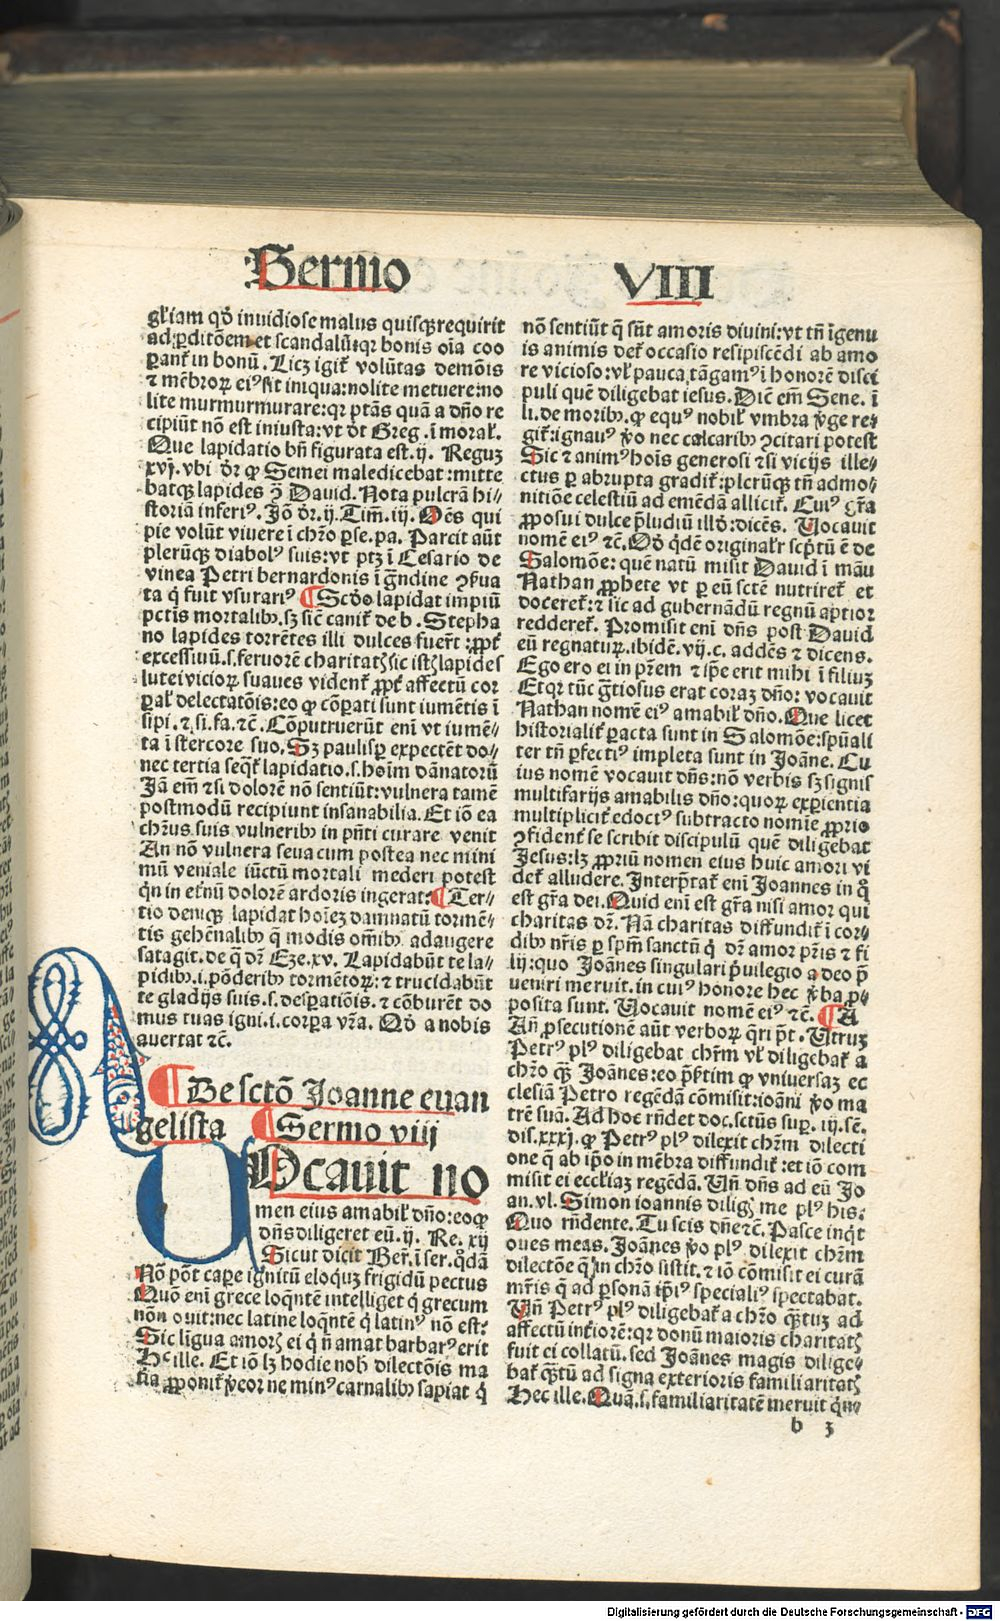 Sermo VIII
gl'iam qd' inuidiose malus quisq̃ requirit
ad ꝑditõem et scandalũ: qr bonis oĩa coo
ꝑant' in bonũ. Licz igit' volũtas demõis
⁊ mẽbroꝝ eiꝰ sit iniqua: nolite metuere: no
lite murmurmurare: qr ptãs quã a dño re
cipiũt nõ est iniusta: vt dt̃ Greg. ĩ moral'.
Que lapidatio bñ figurata est. ij. Reguz
xvj. vbi dr̃ ꝙ Semei maledicebat: mitte
batqꝫ lapides ꝯ̃ Dauid. Nota pulcrã hi⸗
storiã inferiꝰ. Jõ dr̃. ij. Tim̃. iij. Oẽs qui
pie volũt viuere ĩ chr̃o ꝑse. pa. Parcit aũt
plerũqꝫ diabolꝰ suis: vt ptz ĩ Cesario de
vinea Petri bernardonis ĩ g̃ndine ꝯẜua
ta q̃ fuit vsurariꝰ ¶ Scd'o lapidat impiũ
pctis mortalibꝫ. sꝫ sic̃ canit' de b. Stepha
no lapides torrẽtes illi dulces fuer̃t: ꝓpt'
excessiuũ. s. feruorẽ charitatꝭ sic istꝭ lapides
lutei vicioꝝ suaues vident' ꝓpt' affectũ cor
ꝑal' delectatõis: eo ꝙ cõꝑati sunt iumẽtis ĩ
sipi. ⁊ si. fa. ⁊c̃. Cõputruerũt eni vt iumẽ⸗
ta ĩ stercore suo. Sꝫ paulisꝑ expectẽt do⸗
nec tertia seqt' lapidatio. s. hoĩm dãnatorũ
Jã em̃ ⁊ si dolorẽ nõ sentiũt: vulnera tamẽ
postmodũ recipiunt insanabilia. Et iõ ea
chr̃us suis vulneribꝫ in pñti curare venit
An nõ vulnera seua cum postea nec mini
mũ veniale iũctũ mortali mederi potest
qn̄ in et'nũ dolorẽ ardoris ingerat: ¶ Ter⸗
tio deniqꝫ lapidat hoĩez damnatũ tormẽ⸗
tis gehẽnalibꝫ q̃ modis om̃ibꝫ adaugere
satagit. de q̃ dr̃ Eze. xv. Lapidabũt te la⸗
pidibꝫ. i. põderibꝫ tormẽtoꝝ: ⁊ trucidabũt
te gladijs suis. s. desꝑatiõis. ⁊ cõburẽt do
mus tuas igni. i. corꝑa vr̃a. Qd' a nobis
auertat ⁊c̃.
¶ De sctõ Joanne euan
gelista ¶ Sermo viij
Uocauit no
men eius amabil' dño: eo ꝙ
dñs diligeret eũ. ij. Re. xij
Sicut dicit Ber̃. ĩ ser. q̊dã
Nõ põt caꝑe ignitũ eloqꝫ frigidũ pectus
Quõ eni grece loqñtẽ intelliget q̃ grecum
nõn ouit: nec latine loqñtẽ q̃ latinꝰ nõ est:
Sic lĩgua amorꝭ ei q̃ ñ amat barbarꝰ erit
Hec ille. Et iõ lꝫ hodie noꝫ dilectõis ma
t'ia ꝓponit' v̾eor ne minꝰ carnalibꝫ sapiat q̃
nõ sentiũt q̃ sñt amoris diuini: vt tñ ĩgenu
is animis det' occasio resipiscẽdi ab amo
re vicioso: vl' pauca tãgamꝰ ĩ honorẽ disci
puli quẽ diligebat iesus. Dic̃ em̃ Sene. ĩ
li. de moribꝫ. ꝙ equꝰ nobil' vmbra v̾ge re⸗
git': ignauꝰ v̾o nec calcaribꝫ ꝯcitari potest
Sic ⁊ animꝰ hoĩs generosi ⁊ si vicijs ille⸗
ctus ꝑ abrupta gradit': plerũqꝫ tñ admo⸗
nitiõe celestiũ ad emẽdã allicit'. Cuiꝰ gr̃a
ꝓposui dulce p̃ludiũ illd': dicẽs. Vocauit
nomẽ eiꝰ ⁊c̃. Qd' q̃dẽ originalr̃ sc̃ptũ ẽ de
Salomõe: quẽ natũ misit Dauid ĩ mãu
Nathan ꝓphete vt ꝑ eũ sctẽ nutriret' et
doceret': ⁊ sic ad gubernãdũ regnũ aptior
redderet'. Promisit eni dñs post Dauid
eũ regnaturꝫ. ibidẽ. vij. c. addẽs ⁊ dicens.
Ego ero ei in pr̃em ⁊ ip̃e erit mihi ĩ filiuz
Et qr tũc g̃tiosus erat coraz dño: vocauit
Nathan nomẽ eiꝰ amabil' dño. Que licet
historialit' ꝑacta sunt in Salomõe: spũali
ter tñ ꝑfectiꝰ impleta sunt in Joãne. Cu
ius nomẽ vocauit dñs: nõ verbis sꝫ signis
multifarijs amabilis dño: quoꝝ exꝑientia
multiplicit' edoctꝰ subtracto nomĩe ꝓprio
ꝯfident' se scribit discipulũ quẽ diligebat
Jesus: lꝫ ꝓpriũ nomen eius huic amori vi
det' alludere. Interp̃tat' eni Joannes in q̊
est gr̃a dei. Quid eni est gr̃a nisi amor qui
charitas dr̃. Nã charitas diffundit' ĩ cor⸗
dibꝫ nr̃is ꝑ spm̃ sanctũ q̃ dr̃ amor pr̃is ⁊ fi
lij: quo Joãnes singulari p̃uilegio a deo p̃
ueniri meruit. in cuiꝰ honore hec v̾ba p̱⸗
posita sunt. Vocauit nomẽ eiꝰ ⁊c̃. ¶ A
Añ ꝓsecutionẽ aũt verboꝝ q̃ri p̃t. Utruꝫ
Petrꝰ plꝰ diligebat chr̃m vl' diligebat' a
chr̃o q̃ꝫ Joãnes: eo p̃t'tim ꝙ vniuersaꝫ ec
clesiã Petro regẽdã cõmisit: ioãni v̾o ma
trẽ suã. Ad hoc rñdet doc. sctũs suꝑ. iij. sẽ.
dis. xxxj. ꝙ Petrꝰ plꝰ dilexit chr̃m dilecti
one q̃ ab ip̃o in mẽbra diffundit': et iõ com
misit ei eccl'iaꝫ regẽdã. Uñ dñs ad eũ Jo
an. vl. Simon ioannis diligꝭ me plꝰ his:
Quo rñdente. Tu scis dñe ⁊c̃. Pasce inq̃t
oues meas. Joãnes v̾o plꝰ dilexit chr̃m
dilectõe q̃ in chr̃o sistit. ⁊ iõ cõmisit ei curã
mr̃is q̃ ad ꝑsonã ip̃iꝰ specialiꝰ spectabat.
Uñ Petrꝰ plꝰ diligebat' a chr̃o q̃ꝫtuꝫ ad
affectũ int'iorẽ: qr donũ maioris charitatꝭ
fuit ei collatũ. sed Joãnes magis dilige⸗
bat' q̃ꝫtũ ad signa exterioris familiaritatꝭ
Hec ille. Quã. s. familiaritatẽ meruit q̃n⸗
b 3
Digitalisierung gefördert durch die Deutsche Forschungsgemeinschaft - DFG